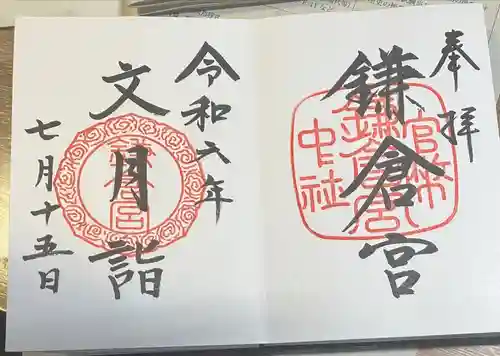 奉拝
鎌倉宮
官幣
鎌倉宮
中社
令和六年
文月詣
七月十五日
鎌倉宮